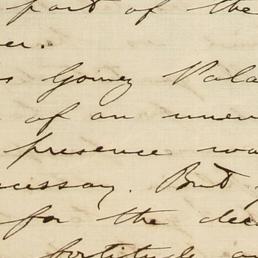 part of the
er.
s Gomez Pala
of an unev
presence wa
cessary. But
for the dec
fortitude an